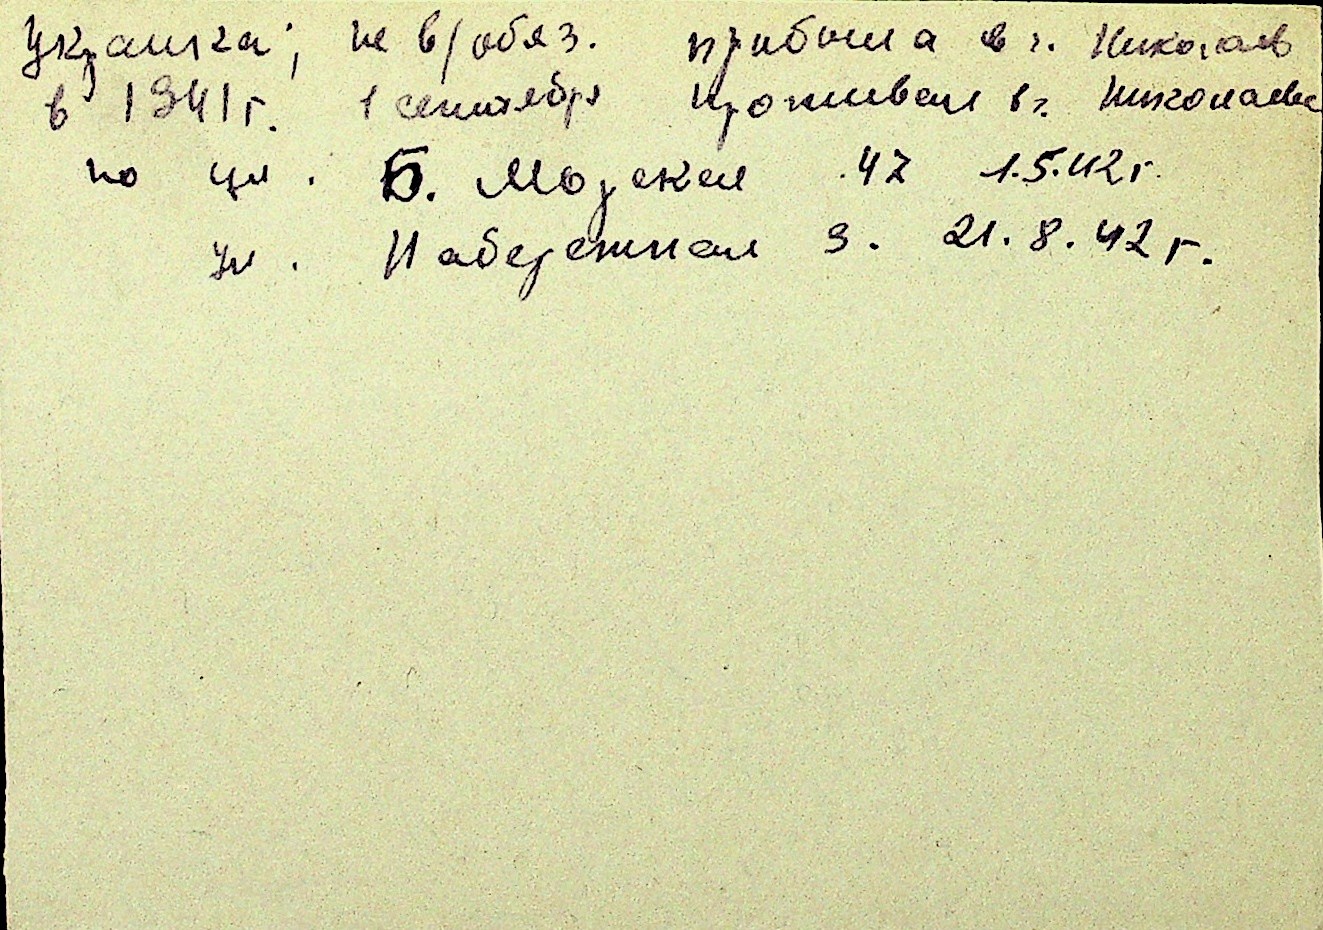 украинка, не в/обяз. прибыла в г. Николаев
в 1941 г. 1 сентября проживал в г. Николаеве
по ул. Б. Морская 47 1.5.42 г.
ул. Набережная 9. 21.8.42 г.